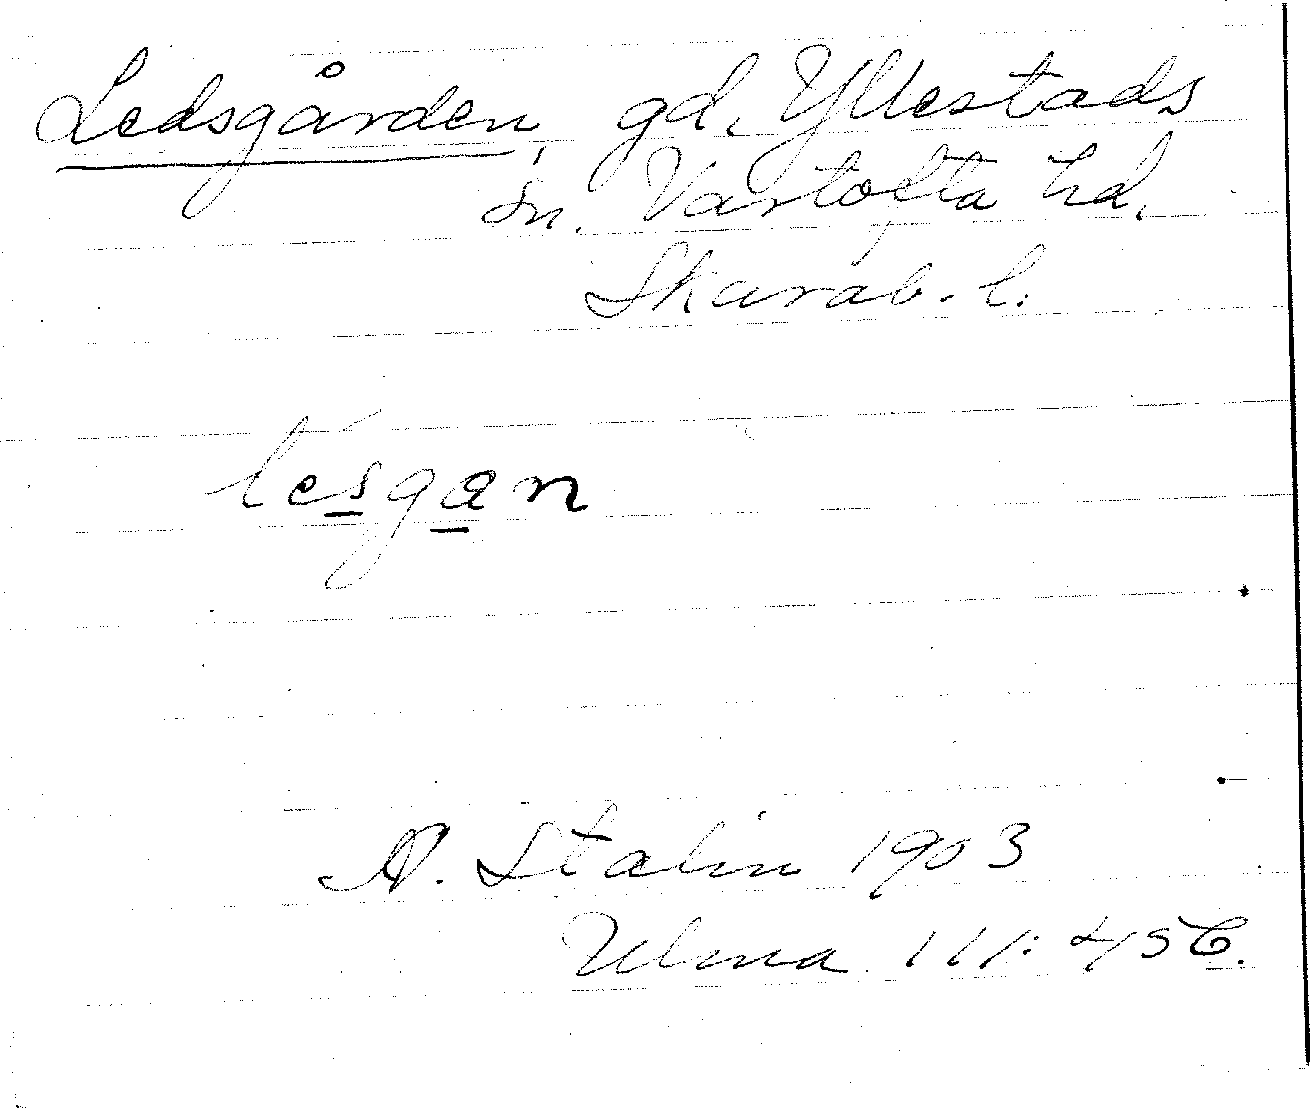 Ledsgården, gd, Yllestads
sn. Vartofta hd,
Skarab. l.
lesgan
A. Stalin 1903
Ulma 111: 456.